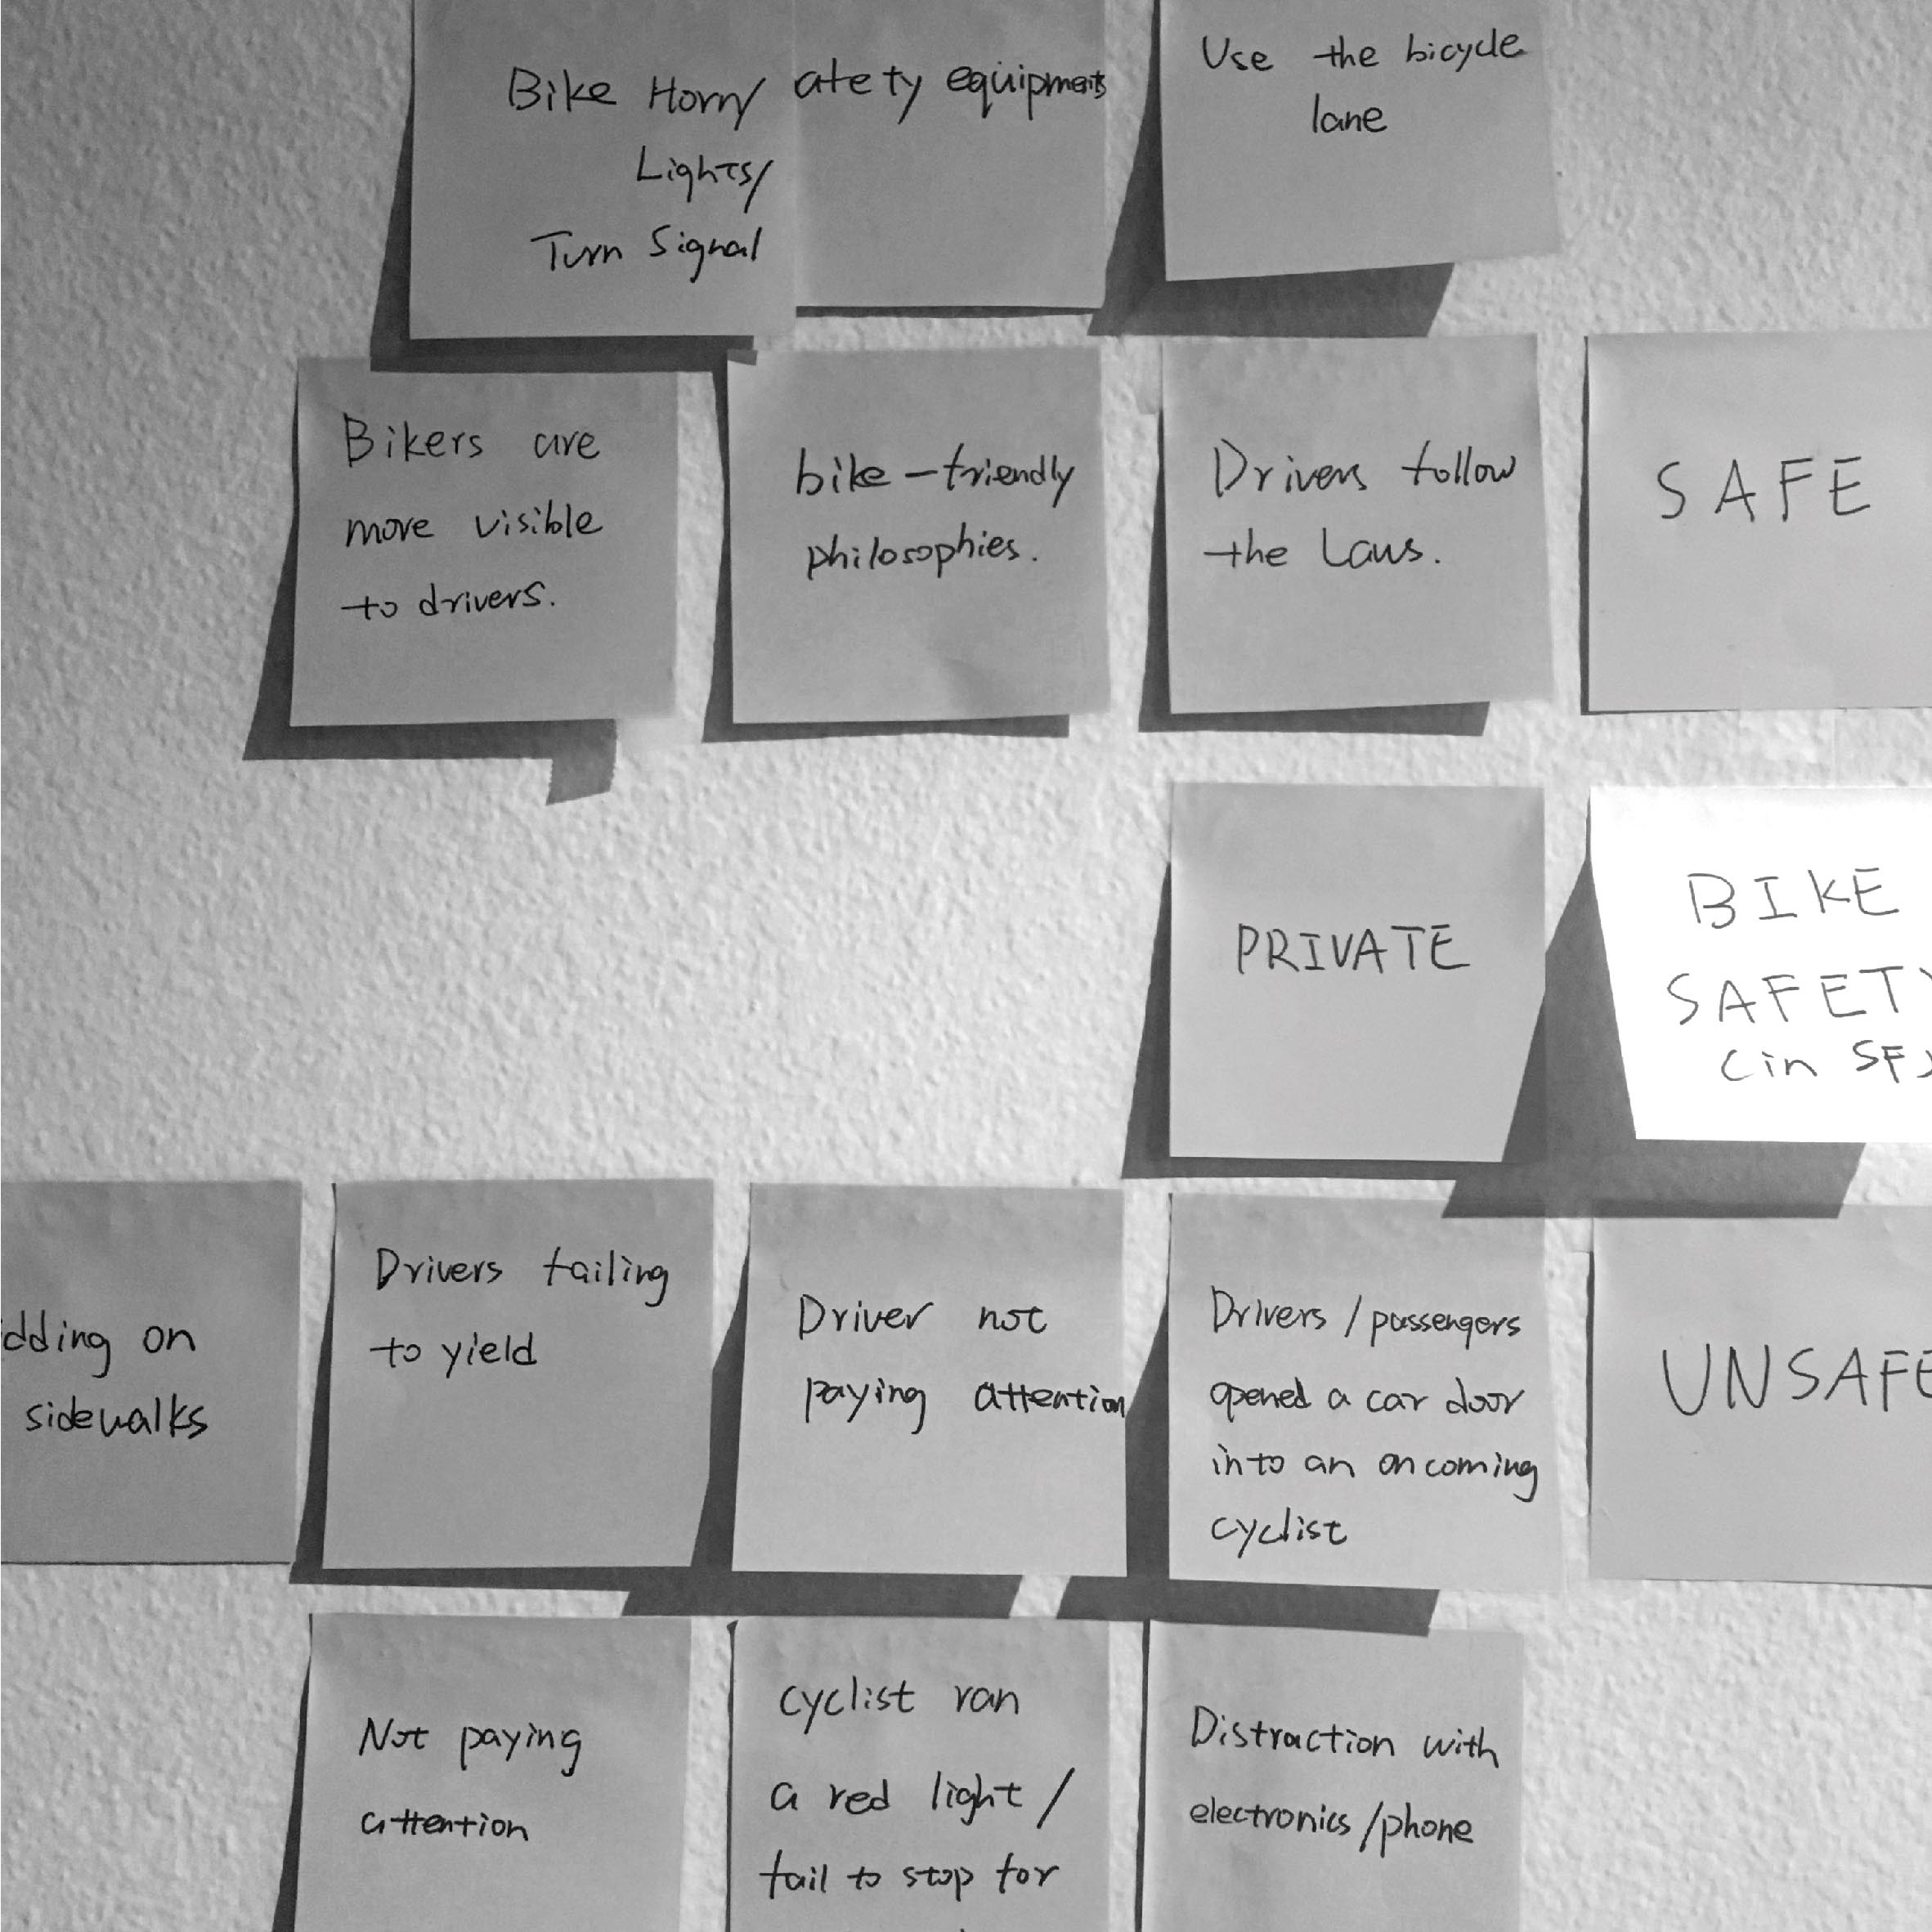 Bike Horn/
Lights/
Turn Signal
afety equipments
Use the bicycle
lane
Bikers are
more visible
to drivers.
bike-friendly
philosophies.
Drivers follow
the Laws.
SAFE
PRIVATE
BIKE
SAFETY
(in SF)
dding on
sidewalks
Drivers failing
to yield
Driver not
paying attention
Drivers / passengers
opened a car door
into an oncoming
cyclist
UNSAFE
Not paying
attention
cyclist ran
a red light /
fail to stop for
Distraction with
electronics/phone